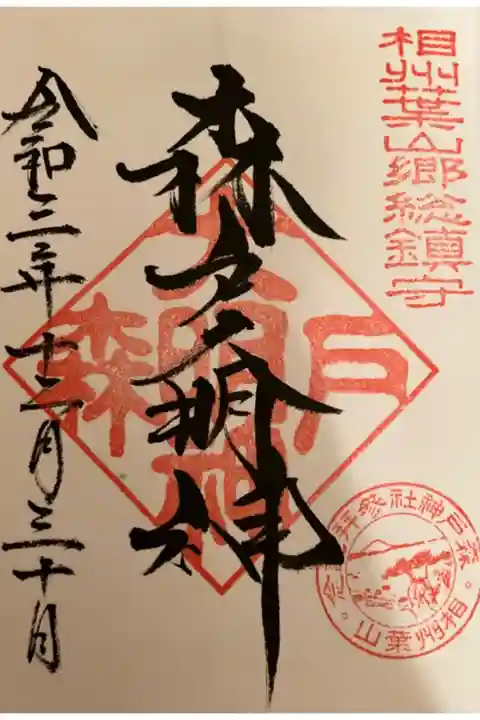 相州葉山郷総鎮守
森戸大明神
森戸大明神
令和三年十二月三十日
森戸神社参拝記念
相州葉山